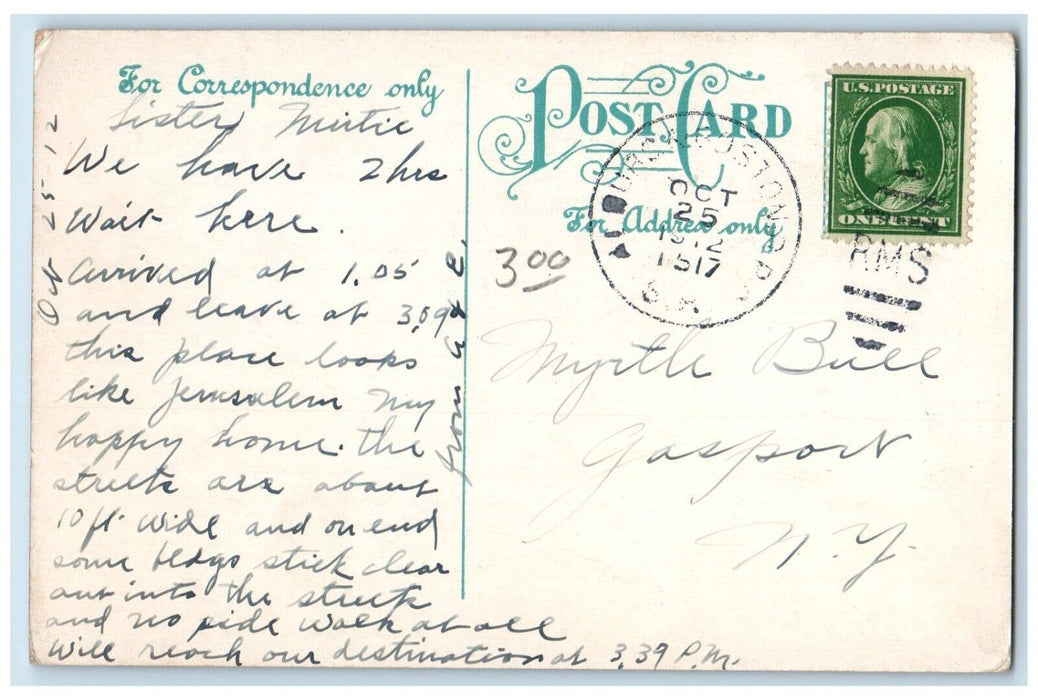 For Correspondence only
POST CARD
For Address only
U.S. POSTAGE
ONE CENT
OCT
25
1912
R.P.O.
RMS
3.00
Oct 25-12
Sister Mirtie
We have 2 hrs
Wait here.
Arrived at 1.05
and leave at 3.09
this place looks
like Jerusalem My
happy home. The
streets are about
10 ft. wide and on end
some bldgs stick clear
out into the streets
and no side walk at all
Will reach our destination at 3.39 P.M.
from
Myrtle Bull
Gasport
N.Y.